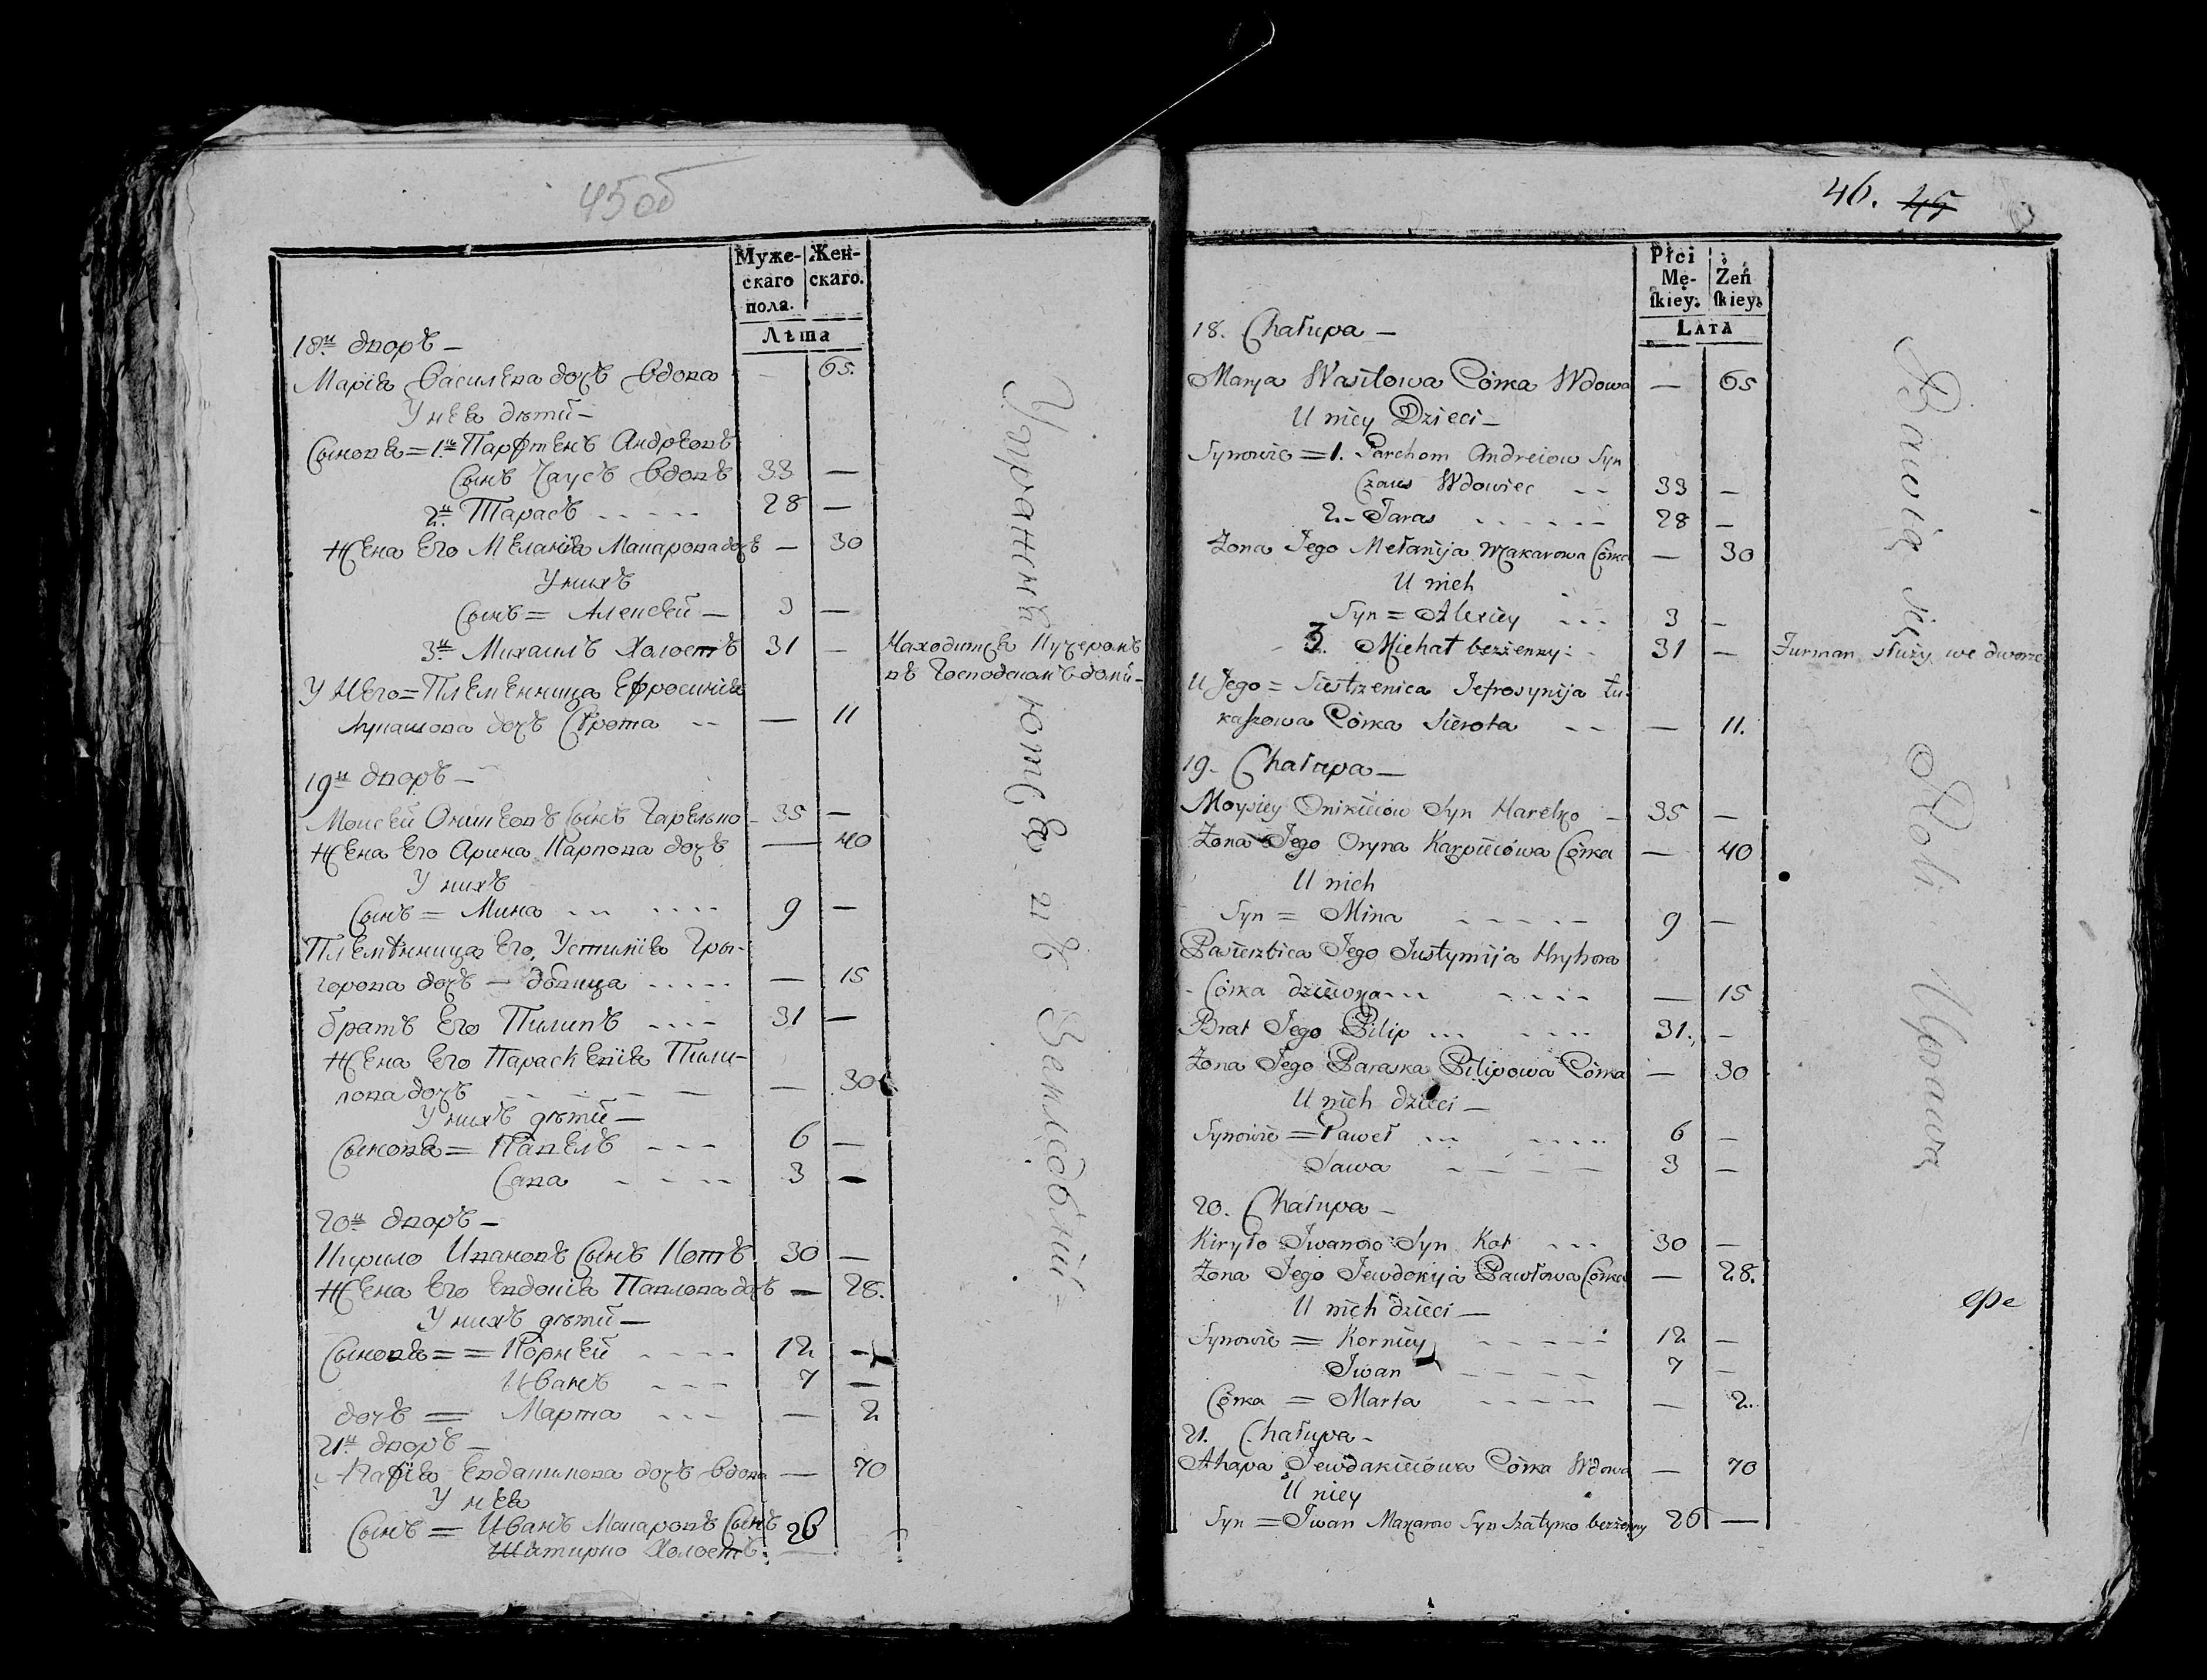 45об
Муже- Жен-
скаго скаго.
пола.
Лѣта
18й дворъ —
Марія Васильева дочь вдова — 65.
У нея дѣти —
Сыновя = 1й Парфтенъ Андреовъ
Сынъ Чаусъ вдовъ 33 —
2й Тарасъ 28 —
Жена Его Меланія Макарова дочь — 30
У нихъ
Сынъ = Алексей — 3 —
3й Михаилъ Холостъ 31 — Находится Кучеромъ
въ Господскомъ доми —
У Него = Племенница Ефросинія
Лукашова дочь Сѣрота — 11
19й дворъ —
Моисей Оникеовъ Сынъ Гарелько 35 —
Жена Его Арина Карпова дочь — 40
У нихъ
Сынъ = Мина 9 —
Племѣнница Его, Устинія Гры-
горова дочь — дѣвица — 15
братъ Его Пилипъ 31 —
Жена Его Параскевія Пили-
пова дочь — 30
У нихъ дѣти —
Сыновя = Павелъ 6 —
Сава 3 —
20й дворъ —
Кирило Ивановъ Сынъ Котъ 30 —
Жена Его Евдокія Павлова дочь — 28.
У нихъ дѣти —
Сыновя = = Корней 12 —
Иванъ 7 —
дочь = Марта — 2
21й дворъ —
Евдакимова дочь вдова — 70
У нея
Сынъ = Иванъ Макаровъ Сынъ 26
Шатирко Холостъ: —
Упражняются въ Земледѣліи —
46. 45
Płci
Mę- Żeń
skiey: skiey:
LATA
18. Chałupa —
Marya Wasilowa Córka Wdowa — 65
U niey Dzieci —
Synowie = 1. Parchom Andreiow Syn
Czaus Wdowiec 33 —
2. Taras 28 —
Żona Jego Mełanija Makarowa Córka — 30
U nich
Syn = Alexiey 3 —
3. Michał bezżenny: 31 — Furman służy we dworze
U Jego = Siestrzenica Jefrosynija Łu-
kaszowa Córka Sierota — 11.
19. Chałupa —
Moysiey Onikieiow Syn Harelko — 35 —
Żona Jego Oryna Karpieiówa Córka — 40
U nich
Syn = Mina 9 —
Pasierzbica Jego Justynija Hryhora
- Córka dziewka — 15
Brat Jego Pilip 31. —
Żona Jego Paraska Pilipowa Córka — 30
U nich dzieci —
Synowie = Paweł 6 —
Sawa 3 —
20. Chałupa —
Kiryło Iwanow Syn Kot 30 —
Żona Jego Jewdokija Pawłowa Córka — 28.
U nich dzieci —
Synowie = Korniey 12 —
Iwan 7 —
Córka = Marta — 2.
21. Chałupa —
Ahapa Jewdakieiówa Córka Wdowa — 70
U niey
Syn = Iwan Makarow Syn Szatyrko bezżenny 26 —
Bawią się Roli Uprawą